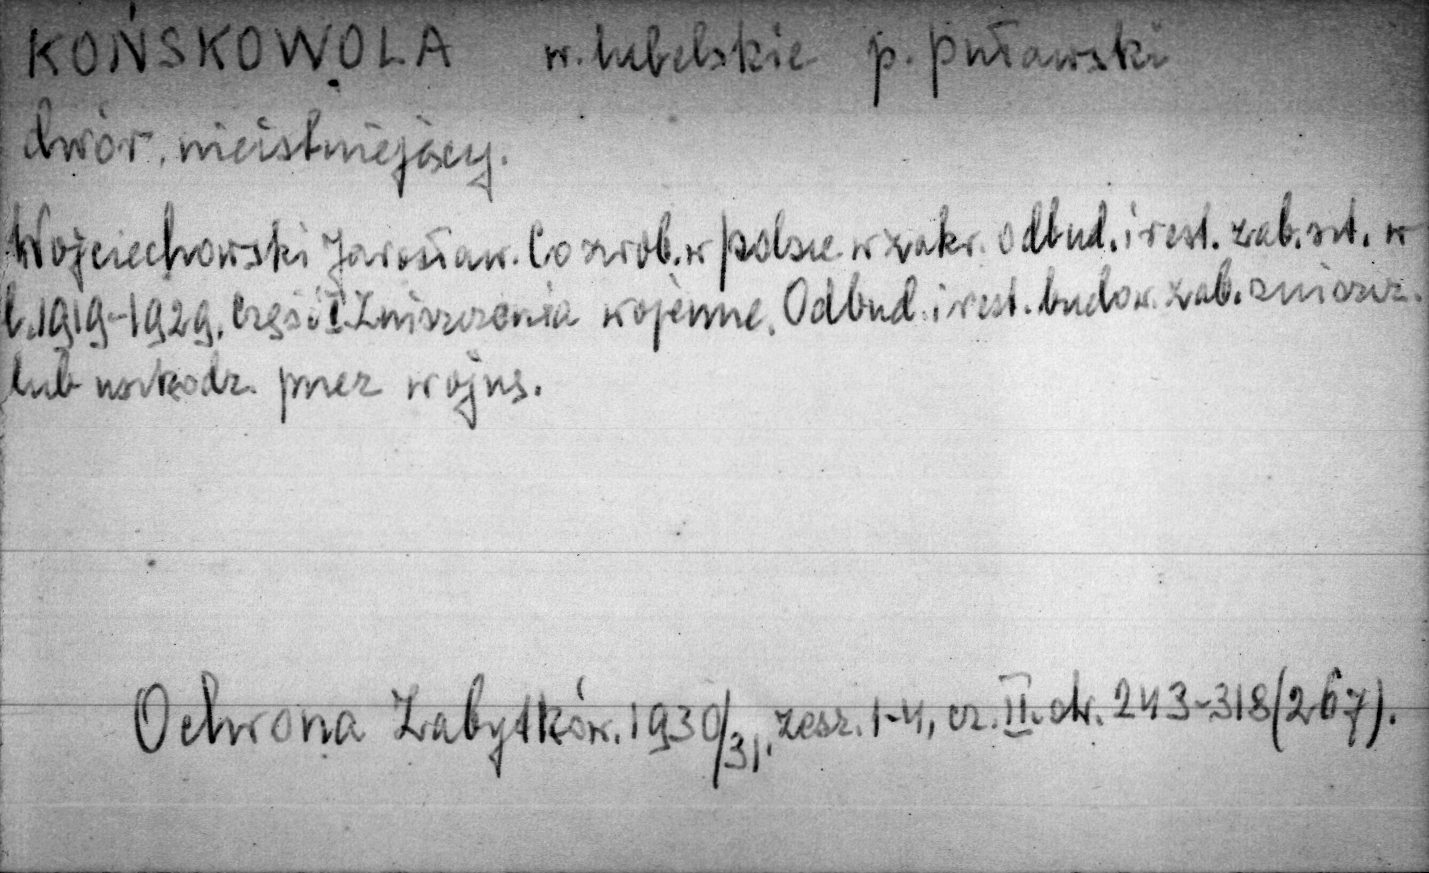 KOŃSKOWOLA w. lubelskie p. puławski
dwór, nieistniejący.
Wojciechowski Jarosław. Co zrob. w Polsce w zakr. odbud. i rest. zab. szt. w
l. 1919-1929. Część I Zniszczenia wojenne. Odbud. i rest. budow. zab. zniszcz.
lub uszkodz. przez wojnę.
Ochrona Zabytków. 1930/31, zesz. 1-4, cz. II. str. 243-318 (267).